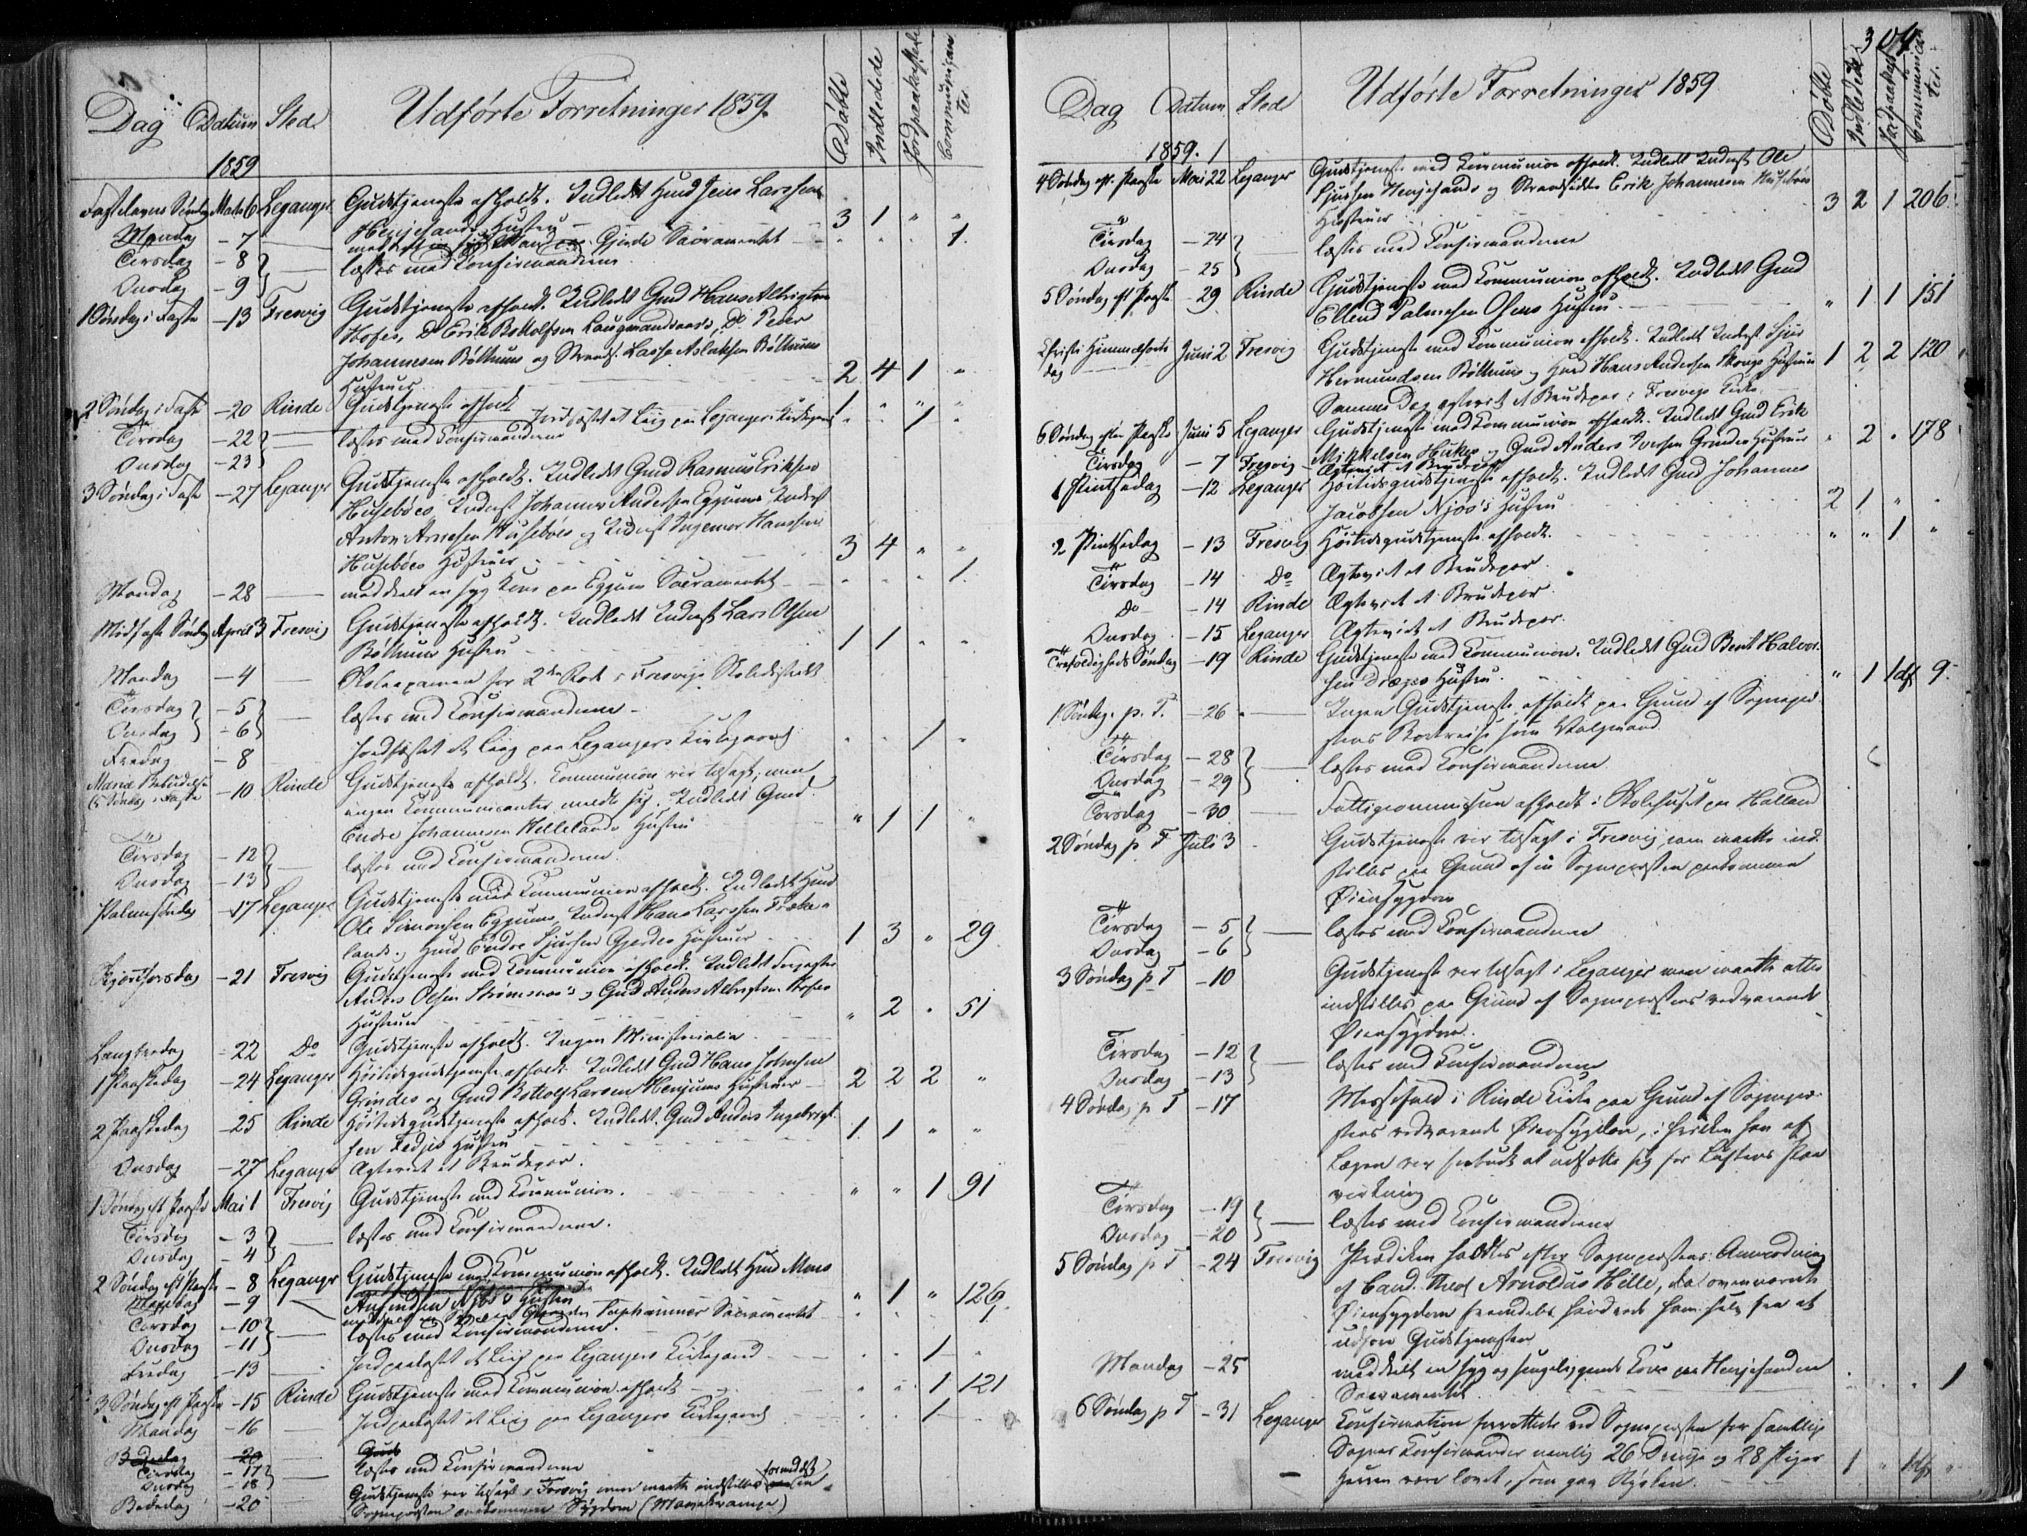 Dag Datum Sted Udførte Forretninger 1859. Døbte Indledede Jordpaakastede Communicanter.
1859
Fastelavns Søndag Marts 6 Leganger Gudstjeneste afholdt. Indledt Huusd Jens Larssens
Henjesands Hustru 3 1 " "
Mandag - 7 — meddelt Sacramentet 1.
Tirsdag - 8 } — læstes med Konfirmanderne.
Onsdag - 9
1 Søndag i Faste - 13 Fresvig Gudstjeneste afholdt. Indledt Gmd Hans Albrigtsen
Hofes, Do Erik Bottolfsen Laugmandsaas, Do Peder
Johannesen Bøthuns og Strands. Lasse Aslaksen Bøthuns
Hustruer 2 4 1 "
2 Søndag i Faste - 20 Rinde Gudstjeneste afholdt 1 " " "
Jordfæstet et Liig paa Leganger Kirkegaard 1
Tirsdag - 22 } — læstes med Konfirmanderne
Onsdag - 23
3 Søndag i Faste - 27 Leganger Gudstjeneste afholdt. Indledt Gmd Rasmus Eriksen
Husebøes, Inderst Johannes Andersen Eggums, Inderst
Anton Arnesen Husebøes og Inderst Ingemor Hanssen
Husebøes Hustruer 3 4 " "
Mandag - 28 — meddeelt en syg Kone paa Eggum Sacramentet 1.
Midfaste Søndag April 3 Fresvig Gudstjeneste afholdt. Indledt Inderst Lars Olsen
Bøthuns Hustru 1 1 " "
Mandag - 4 — Skoleexamen for 2den Rode i Fresvigs Skoledistrikt
Tirsdag - 5 } — læstes med Konfirmanderne
Onsdag - 6
Fredag - 8 Jordfæstet et Liig paa Legangers Kirkegaard 1
Mariæ Bebudelse
(5 Søndag i Faste - 10 Rinde Gudstjeneste afholdt. Communion var tilsagt, men
ingen Kommunicanter meldte sig. Indledt Gmd.
Endre Johannesen Hellelands Hustru " 1 1 "
Tirsdag - 12 } — læstes med Konfirmanderne.
Onsdag - 13
Palmesøndag - 17 Leganger Gudstjeneste med Kommunion afholdt. Indledt Huusd
Ole Simonsen Eggums, Inderst Hans Larssen Fræke-
lands, Huusd Endre Sjursen Gjerdes Hustruer 1 3 " 29
Skjærtorsdag - 21 Fresvig Gudstjeneste med Kommunion afholdt. Indledt
Anders Olsen Strømsnæs's og Gmd Anders Albrigtsen Hofes
Hustruer " 2 " 51
Langfredag - 22 Do Gudstjeneste afholdt. Ingen Ministerialia
1 Paaskedag - 24 Leganger Høitidsgudstjeneste afholdt. Indledt Gmd Hans Johnsen
Grindes og Gmd Bottolf Larsen Henjums Hustruer 2 2 2 "
2 Paaskedag - 25 Rinde Høitidsgudstjeneste afholdt. Indledt Gmd Anders Ingebrigt-
sen Hustru 1 1 " "
Onsdag - 27 Leganger Ægteviet et Brudepar.
1 Søndag eft Paaske Mai 1 Fresvig Gudstjeneste med Kommunion. " " 1 91
Tirsdag - 3 } — læstes med Konfirmanderne.
Onsdag - 4
2 Søndag eft Paaske - 8 Leganger Gudstjeneste med Kommunion afholdt. Indledt Huusd Mons
Njøs's Hustru " 1 " 126.
Mandag - 9 Sacramentet
Tirsdag - 10 } — læstes med Konfirmanderne.
Onsdag - 11
Fredag - 13 Jordpaakastet et Liig paa Legangers Kirkegaard 1
3 Søndag eft Paaske - 15 Rinde Gudstjeneste med Kommunion afholdt " " 1 121
Mandag - 16 — Jordpaakastet et Liig paa Legangers Kirkegaard 1
Bededag 20 Guds
Tirsdag - 17 } — læstes med Konfirmanderne
Onsdag - 18
Bededag - 20 Gudstjeneste var tilsagt i Fresvig men maatte indstilles formedelst en
Sognepræsten overkommen Sygdom (Mavekrampe)
304.
Dag Datum Sted Udførte Forretninger 1859 Døbte Indledede Jordpaakastede Communicanter.
1859.
4 Søndag eft. Paaske Mai 22 Leganger Gudstjeneste med Kommunion afholdt. Indledt Inderst Ole
Sjursen Henjesands og Strandsidder Erik Johannesen Husebøes
Hustruer 3 2 1 206
Tirsdag - 24 } — læstes med Konfirmanderne
Onsdag - 25
5 Søndag eft Paaske - 29 Rinde Gudstjeneste med Kommunion afholdt. Indledt Gmd
Ellend Salmesen Hustru " 1 1 151
Christi Himmelfarts
dag Juni 2 Fresvig Gudstjeneste med Kommunion afholdt. Indledt Inderst Sjur
Hermundsen Bøthuns og Huusd Hans Andersen Hustruer 1 2 2 120
Samme Dag ægteviet et Brudepar i Fresvigs Kirke
6 Søndag efter Paaske Juni 5 Leganger Gudstjeneste med Kommunion afholdt. Indledt Gmd Erik
Mikkelsen og Gmd Anders Iversen Grindes Hustruer " 2 " 178
Tirsdag - 7 Fresvig Ægteviet et Brudepar
1 Pintsedag - 12 Leganger Høitidsgudstjeneste afholdt. Indledt Gmd Johannes
Jacobsen Njøs's Hustru 2 1 " "
2 Pintsedag - 13 Fresvig Høitidsgudstjeneste afholdt. " " 1 "
Tirsdag - 14 Do Ægteviet et Brudepar.
Do - 14 Rinde Ægteviet et Brudepar.
Onsdag - 15 Leganger Ægteviet et Brudepar.
Trefoldigheds Søndag - 19 Rinde Gudstjeneste med Kommunion. Indledt Gmd Bent Halvor-
sen Hustru. " 1 1df 9.
1 Søndag. p. T. - 26 — Ingen Gudstjeneste afholdt paa Grund af Sognepræ-
stens Bortreise som Valgmand
Tirsdag - 28 } — læstes med Konfirmanderne
Onsdag - 29
Torsdag - 30 — Fattigcommission afholdt i Skolehuset paa Halland
2 Søndag p T Juli 3 Gudstjeneste var tilsagt i Fresvig, men maatte ind-
stilles paa Grund af en Sognepræsten paakommen
Øiensygdom
Tirsdag - 5 } — læstes med Konfirmanderne
Onsdag - 6
3 Søndag p T - 10 Gudstjeneste var tilsagt i Leganger men maatte atter
indstilles paa Grund af Sognepræstens vedvarende
Øiensygdom.
Tirsdag - 12 } — læstes med Konfirmanderne
Onsdag - 13
4 Søndag p T - 17 Messefald i Rinde Kirke paa Grund af Sognepræ-
stens vedvarende Øiensygdom, i hvilken han af
Lægen var forbudt at udsætte sig for Luftens Paa-
virkning
Tirsdag - 19 } — læstes med Konfirmanderne
Onsdag - 20
5 Søndag p T - 24 Fresvig Prædiken holdtes efter Sognepræstens Anmodning
af Cand. theol Arnoldus Hille, da ovennævnte
Øiensygdom fremdeles hindrede ham selv fra at
udføre Gudstjenesten
Mandag - 25 meddeelt en syg og sengeliggende Kone paa Henjesanden
Sacramentet 1
6 Søndag p T - 31 Leganger Konfirmation forrettede ved Sognepræsten for samtlige
Sognes Konfirmander nemlig 26 Drenge og 28 Piger
Herren være lovet, som gav Kræften. 1 " 1df "